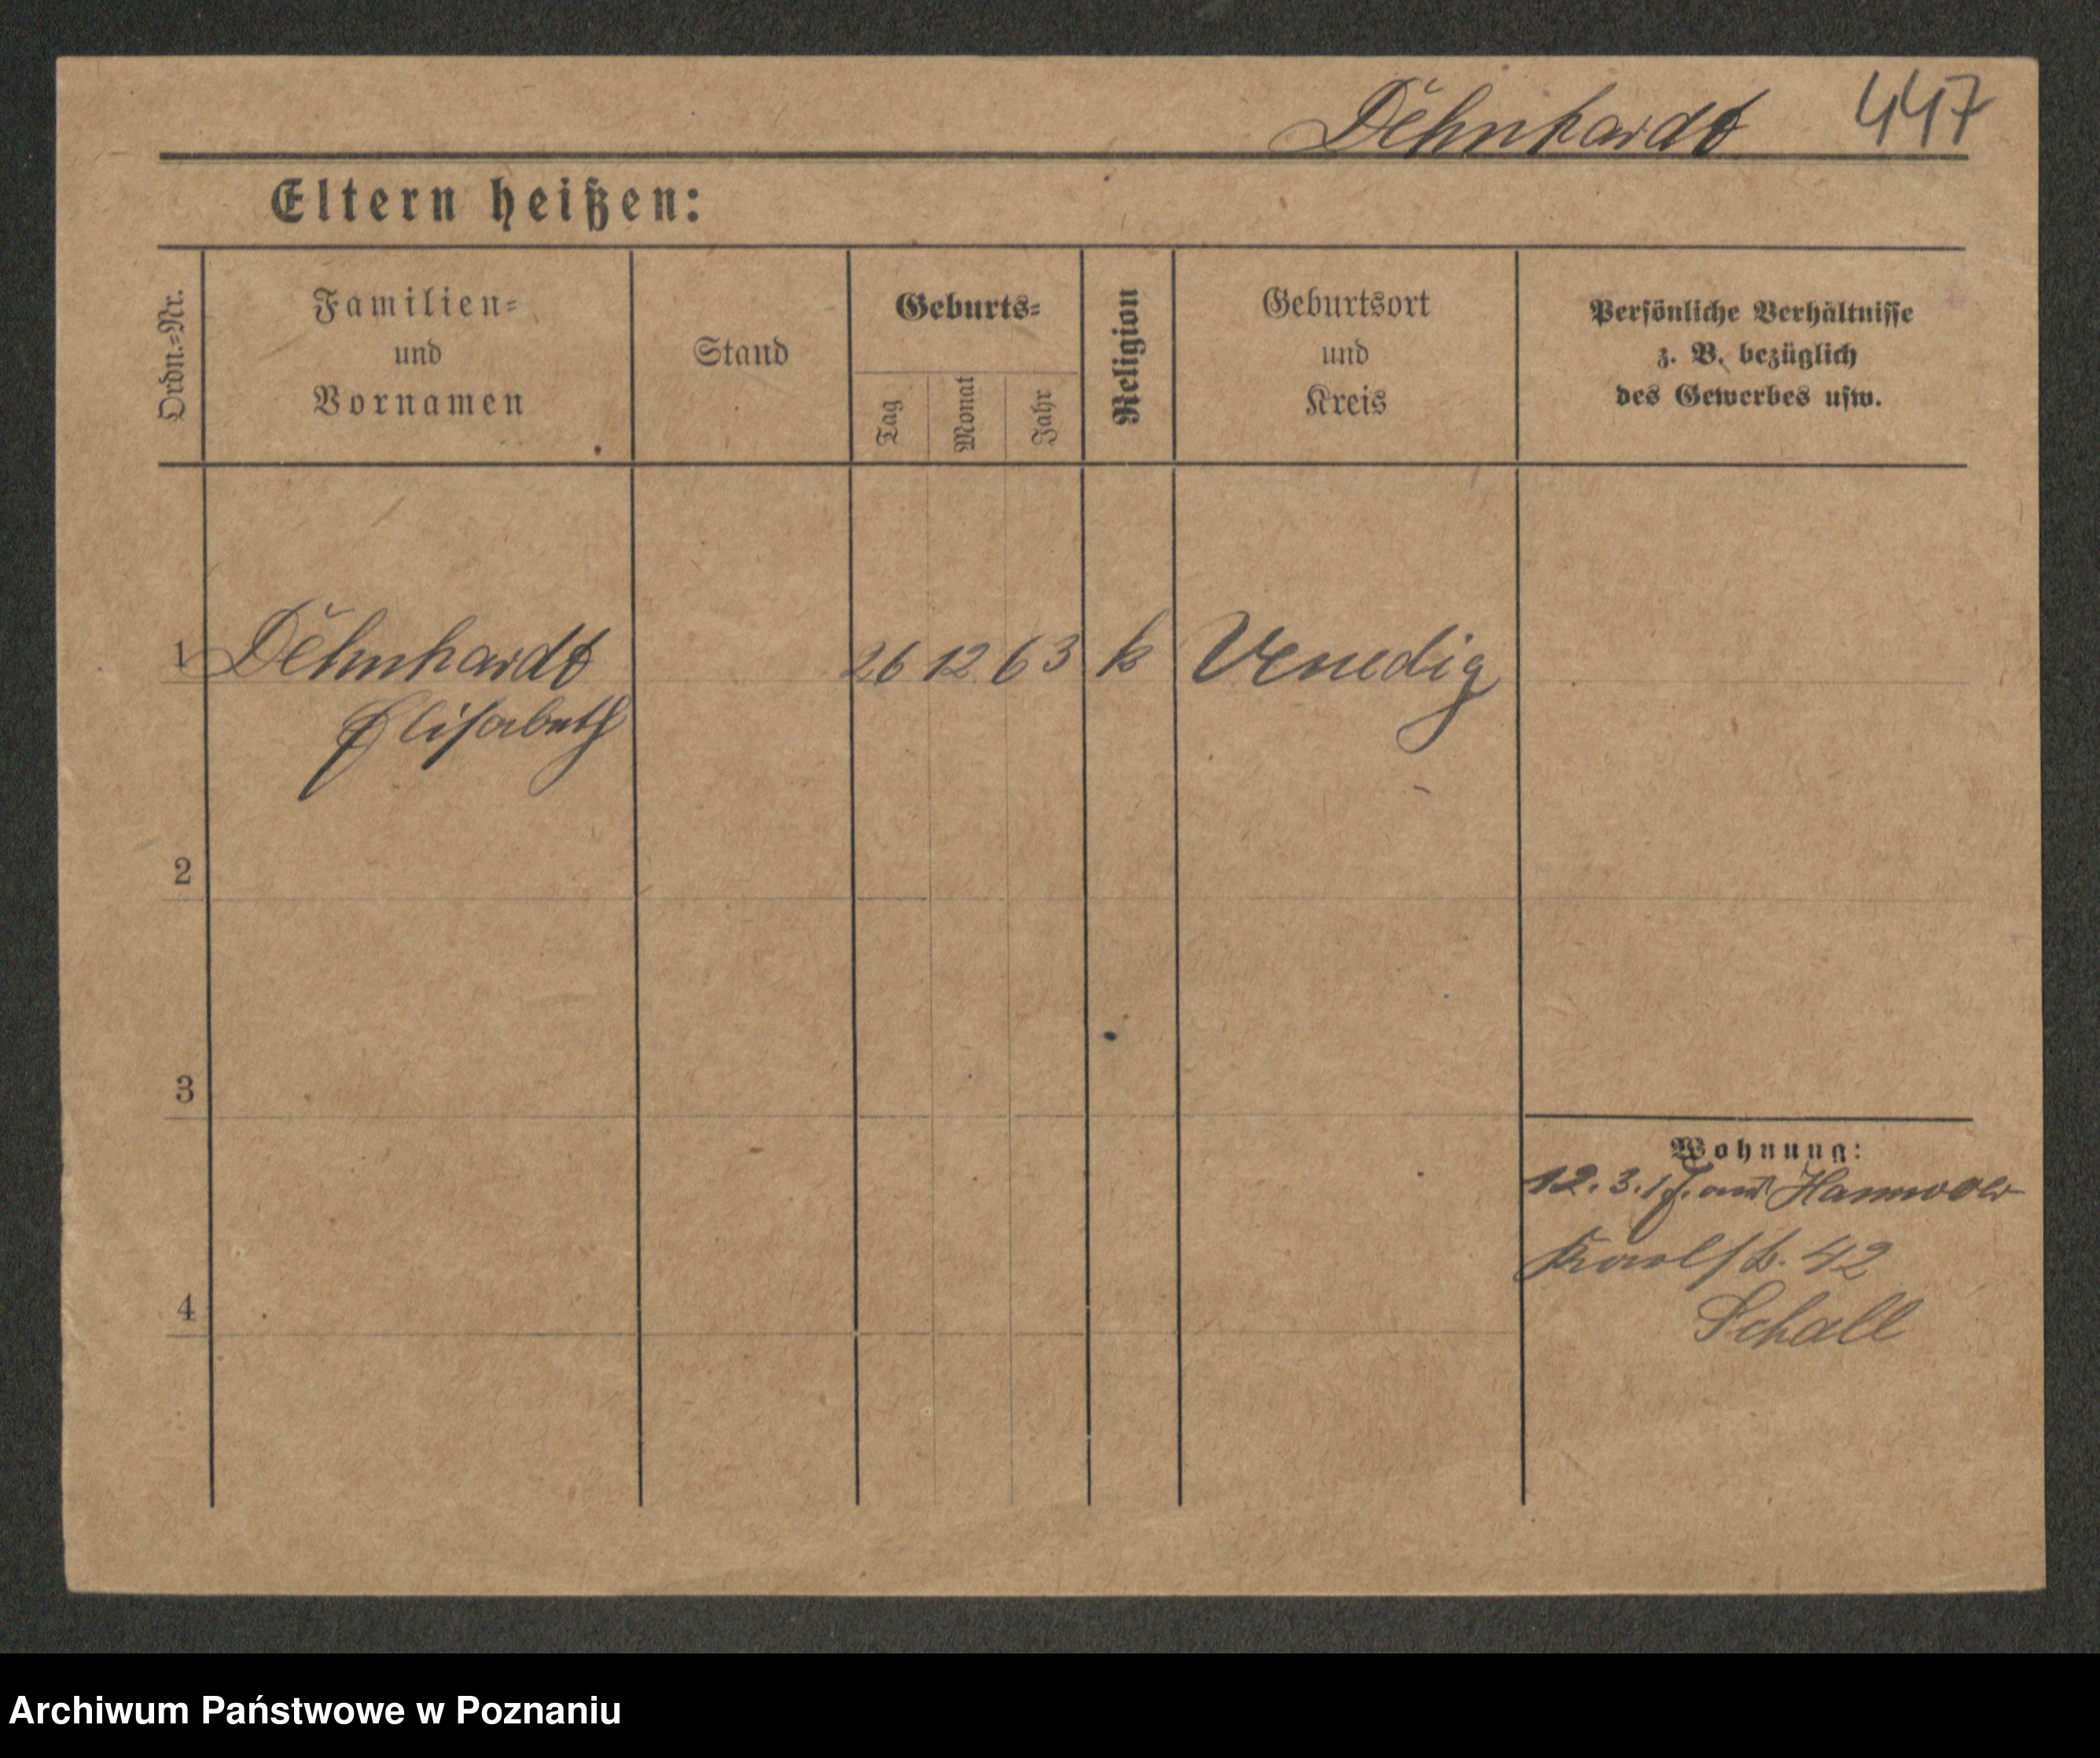 Dehnhardt 447
Eltern heißen:
Ordn.=Nr.
Familien=
und
Vornamen
Stand
Geburts=
Tag
Monat
Jahr
Religion
Geburtsort
und
Kreis
Persönliche Verhältnisse
z. B. bezüglich
des Gewerbes usw.
1 Dehnhardt 26 12 63 k Venedig
Elisabeth
2
3
Wohnung:
12. 3. 17. aus Hannover
Karlst. 42
4
Schall
Archiwum Państwowe w Poznaniu